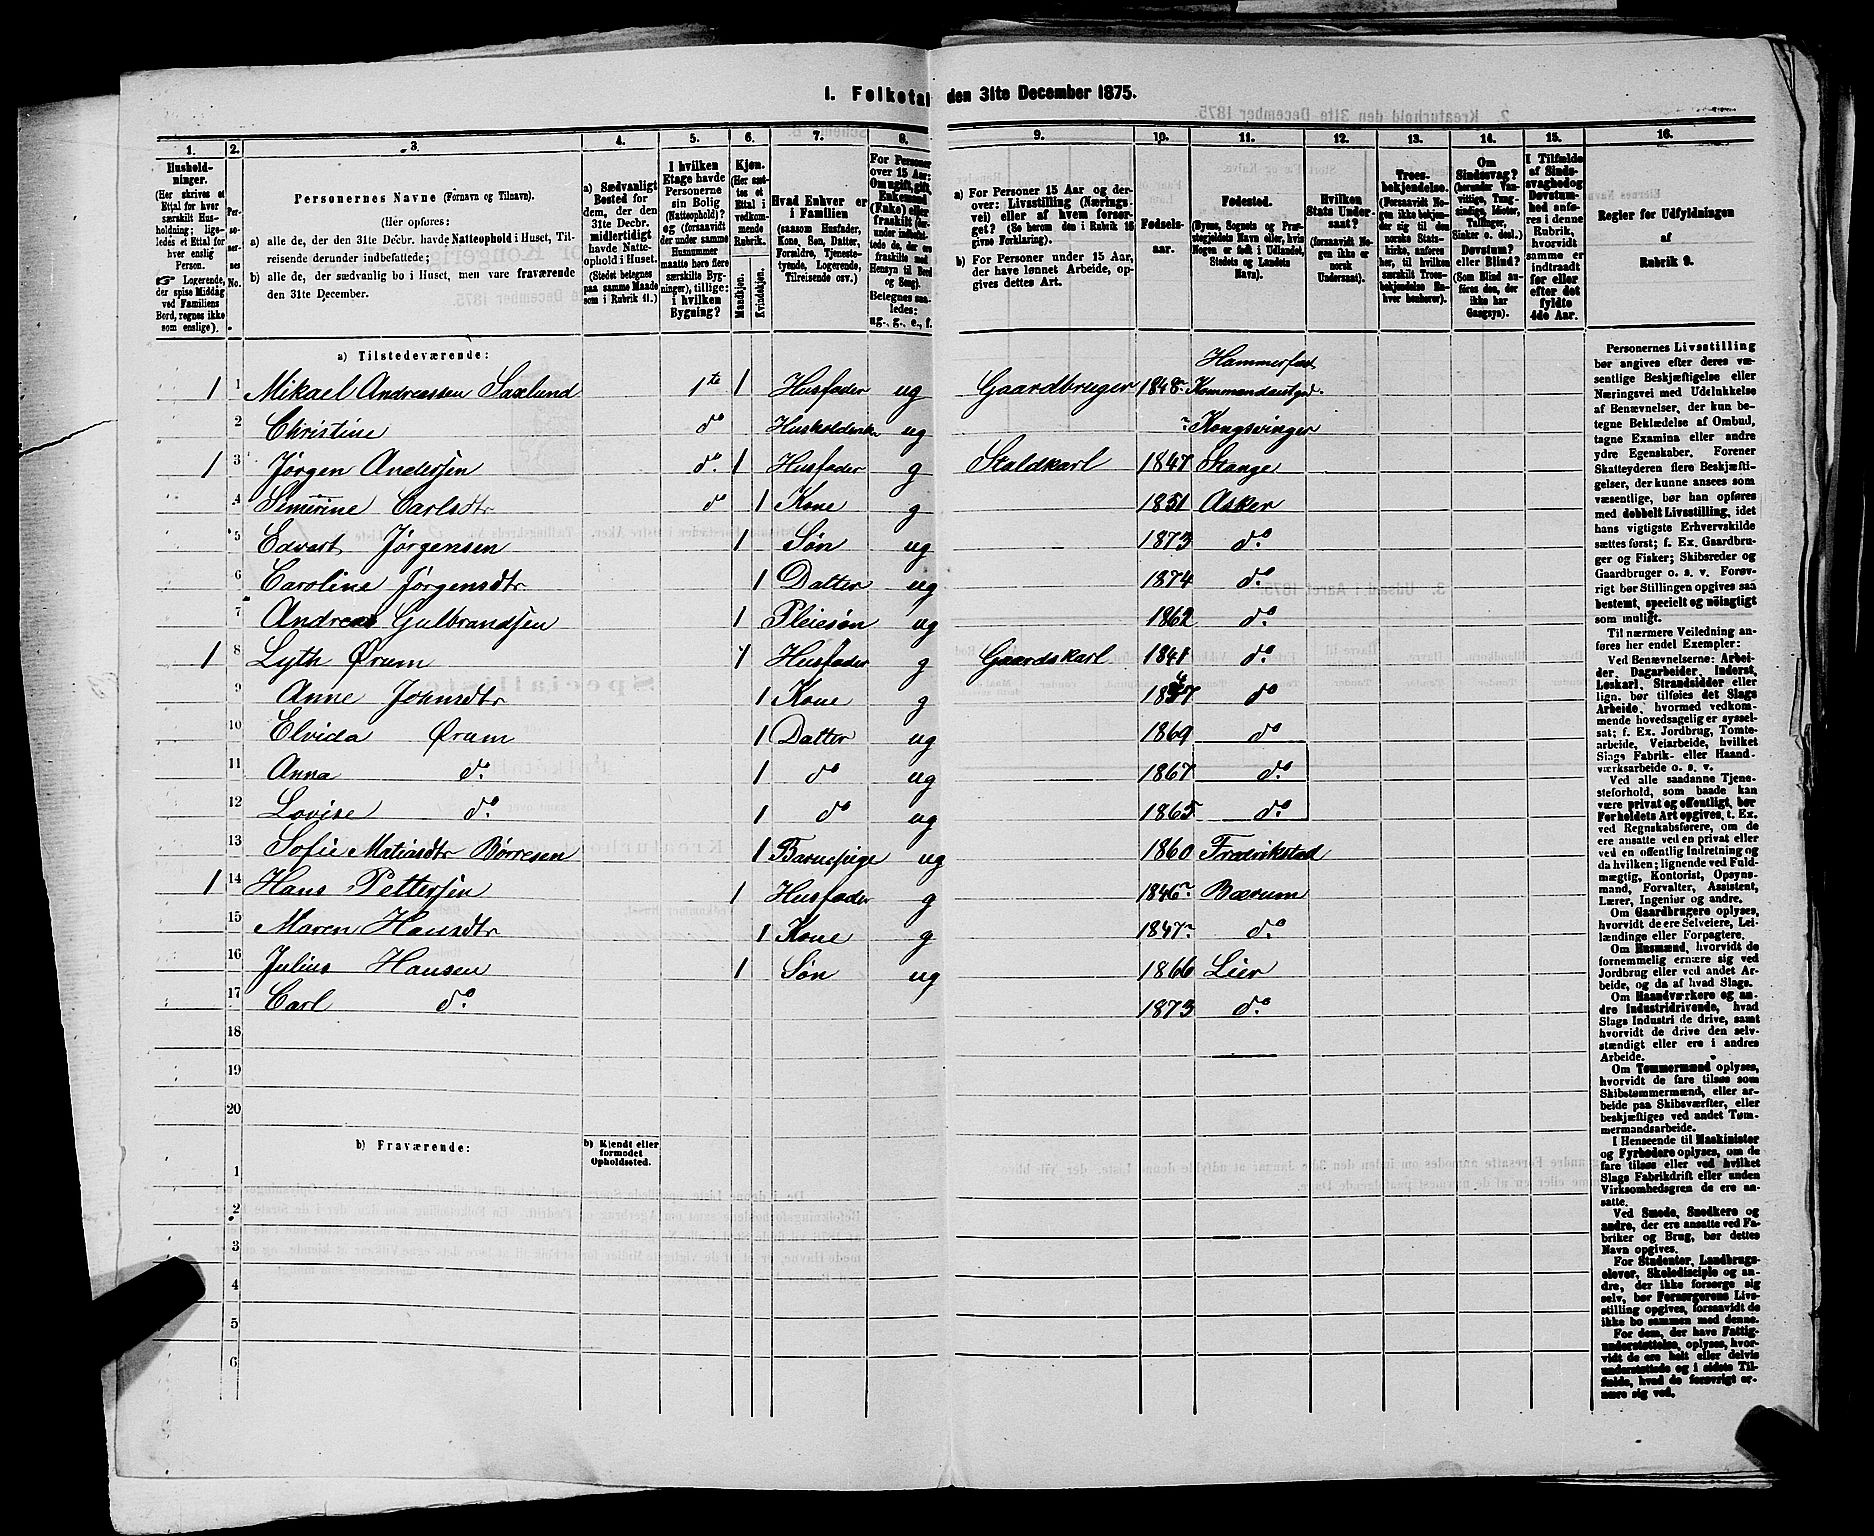 1. Folketal den 31te December 1875.
1. 2. 3 4. 5. 6. 7. 8. 9. 10. 11. 12. 13. 14. 15. 16.
Hushold-
ninger.
(Her skrives et
Ettal for hver
særskilt Hus-
holdning; lige-
ledes et Ettal for
hver enslig
Person.
Logerende,
der spise Middag
ved Familiens
Bord, regnes ikke
som enslige).
Per-
so-
ner-
nes
No.
Personernes Navne (Fornavn og Tilnavn).
(Her opføres:
a) alle de, der den 31te Decbr. havde Natteophold i Huset, Til-
reisende derunder indbefattede;
b) alle de, der sædvanlig bo i Huset, men vare fraværende
den 31te December.
a) Sædvanligt
Bosted for
dem, der den
31te Decbr.
midlertidigt
havde Natte-
ophold i Huset.
(Stedet betegnes
paa samme Maade
som i Rubrik 11.)
I hvilken
Etage havde
Personerne
sin Bolig
(Natteophold)?
og (forsaavidt
der under samme
Husnummer
maatte høre flere
særskilte Byg-
ninger), tillige:
i hvilken
Bygning?
Kjøn.
(Her sæt-
tes et
Ettal i
vedkom-
mende
Rubrik.
Mandkjøn.
Kvindekjøn.
Hvad Enhver er
i Familien
(saasom Husfader,
Kone, Søn, Datter,
Forældre, Tjeneste-
tyende, Logerende,
Tilreisende osv.)
For Personer
over 15 Aar:
Om ugift, gift,
Enkemand
(Enke) eller
fraskilt
Hensyn til Bord
og Seng).
Betegnes saa-
ledes:
ug-, g-, e-, f.
a) For Personer 15 Aar og der-
over: Livsstilling (Nærings-
vei) eller af hvem forsør-
get? (Se herom den i Rubrik 16
givne Forklaring).
b) For Personer under 15 Aar,
der have lønnet Arbeide, op-
gives dettes Art.
Fødsels-
aar.
Fødested.
(Byens, Sognets og Præ-
stegjeldets Navn eller, hvis
Nogen er født i Udlandet,
Stedets og Landets
Navn).
Hvilken
Stats Under-
saat?
(forsaavidt No-
gen ikke er
norsk
Undersaat).
Troes-
bekjendelse.
(Forsaavidt No-
gen ikke bekjen-
der sig til den
norske Stats-
kirke, anføres
her, til hvilken
særskilt Troes-
bekjendelse En-
hver henhører).
Om
Sindssvag?
(herunder Van-
vittige, Tung-
sindige, Idioter,
Tullinger,
Sinker o. desl.).
Døvstum?
eller Blind?
(Som Blind an-
føres den, der
ikke har
Gangsyn).
I Tilfælde
af Sinds-
svaghed og
Døvstum-
hed anfø-
res i denne
Rubrik,
hvorvidt
samme er
indtraadt
før eller
efter det
fyldte
4de Aar.
Regler for Udfyldningen
af
Rubrik 9.
a) Tilstedeværende:
Hammerfest
1 1 Mikael Andreassen Saxlund 1te 1 Husfader ug Gaardbruger 1848 Kommandantgd.
2 Christine do Husholderske ug " Kongsvinger
1 3 Jørgen Andersen do. 1 Husfader g Staldkarl 1847 Stange
4 Simirine Carlsdtr do 1 Kone g 1851 Asker
5 Edvart Jørgensen 1 Søn ug 1873 do.
6 Caroline Jørgensdtr 1 Datter ug 1874 do.
7 Andreas Gulbrandsen 1 Pleiesøn ug 1862 do.
1 8 Lyth Ørum 1 Husfader g Gaardskarl 1841 do.
9 Anne Johnsdtr 1 Kone g 1847 do
10 Elvida Ørum 1 Datter ug 1869 do
11 Anna do. 1 do ug 1867 do.
12 Lovise do. 1 do ug 1865 do.
13 Sofie Matiasdtr Børresen 1 Barnepige ug 1860 Fredrikstad
1 14 Hans Pettersen 1 Husfader g 1846 Bærum
15 Maren Hansdtr 1 Kone g 1847 do.
16 Julius Hansen 1 Søn ug 1866 Lier
17 Carl do. 1873 do.
18
19
20
b) Fraværende:
b) Kjendt eller
formodet
Opholdssted.
1
2
3
4
5
6
Personernes Livsstilling
bør angives efter deres væ-
sentlige Beskjæftigelse eller
Næringsvei med Udelukkelse
af Benævnelser, der kun be-
tegne Beklædelse af Ombud,
tagne Examina eller andre
ydre Egenskaber. Forener
Skatteyderen flere Beskjæfti-
gelser, der kunne ansees som
væsentlige, bør han opføres
med dobbelt Livsstilling, idet
hans vigtigste Erhvervskilde
sættes først; f. Ex. Gaardbru-
ger og Fisker; Skibsreder og
Gaardbruger o. s. v. Forøv-
rigt bør Stillingen opgives saa
bestemt, specielt og nöiagtigt
som muligt.
Til nærmere Veiledning an-
føres her endel Exempler:
Ved Benævnelserne: Arbei-
der, Dagarbeider, Inderst,
Løskarl, Strandsidder eller
lign. bør tilføies det Slags
Arbeide, hvormed vedkom-
mende hovedsagelig er syssel-
sat; f. Ex. Jordbrug, Tomte-
arbeide, Veiarbeide, hvilket
Slags Fabrik- eller Haand-
værksarbeide o. s. v.
Ved alle saadanne Tjene-
steforhold, som baade kan
være privat og offentligt, bør
Forholdets Art opgives, t. Ex.
ved Regnskabsførere, om de
ere ansatte ved en privat eller
ved en offentlig Indretning og
da hvilken; lignende ved Fuld-
mægtig, Kontorist, Opsyns-
mand, Forvalter, Assistent,
Lærer, Ingeniør og andre.
Om Gaardbrugere oplyses,
hvorvidt de ere Selveiere, Lei-
lændinge eller Forpagtere.
Om Husmænd, hvorvidt de
fornemmelig ernære sig ved
Jordbrug eller ved andet Ar-
beide, og da af hvad Slags.
Om Haandværkere og an-
dre Industridrivende, hvad
Slags Industri de drive, samt
hvorvidt de drive den selv-
stændigt eller ere i andres
Arbeide.
Om Tømmermænd oplyses,
hvorvidt de fare tilsøs som
Skibstømmermænd, eller ar-
beide paa Skibsværfter, eller
beskjæftiges ved andet Tøm-
mermandsarbeide.
I Henseende til Maskinister
og Fyrbødere oplyses, om de
fare tilsøs eller ved hvilket
Slags Fabrikdrift eller anden
Virksomhedsgren de ere an-
satte.
Ved Smede, Snedkere og
andre, der ere ansatte ved Fa-
briker og Brug, bør dettes
Navn opgives.
For Studenter, Landbrugs-
elever, Skoledisciple og an-
dre, der ikke forsørge sig
selv, bør Forsørgerens Livs-
stilling opgives, forsaavidt de
ikke bo sammen med denne.
For dem, der have Fattig-
understøttelse, oplyses, hvor-
vidt de ere helt eller delvis
understøttede og i sidste Til-
fælde, hvad de forøvrigt er-
nære sig ved.